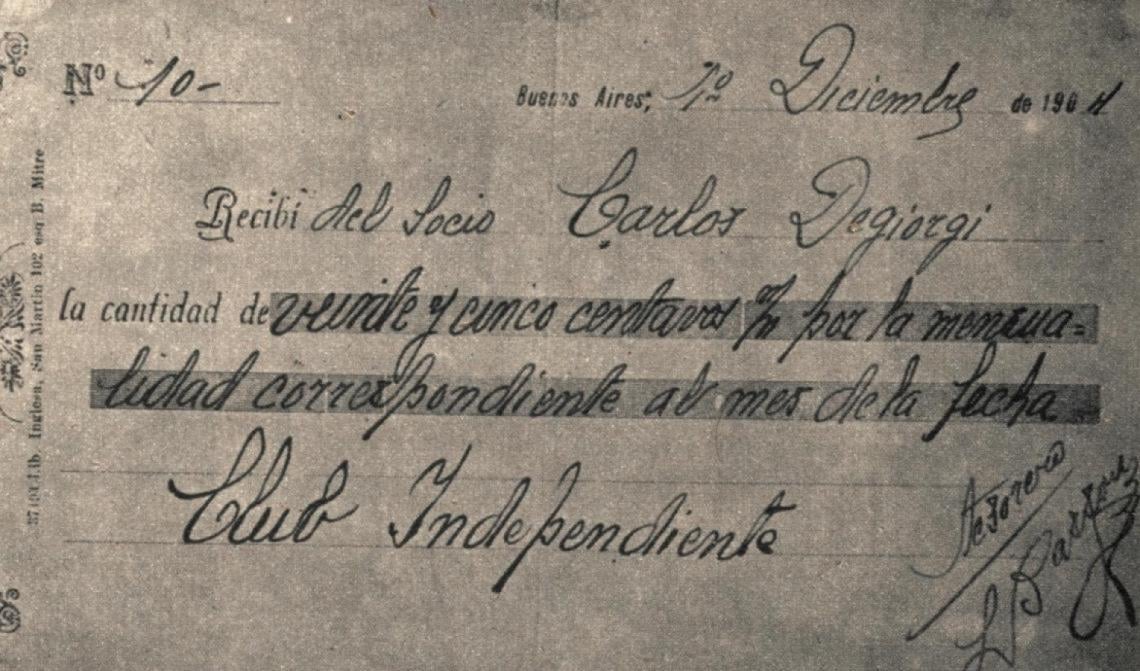 Nº 10- Buenos Aires, 1º Diciembre de 1904
Recibí del Socio Carlos Degiorgi
la cantidad de veinte y cinco centavos m/n por la mensua=
lidad correspondiente al mes de la fecha
Club Independiente
Tesorero
37490-Lib. Inglesa, San Martin 102 esq B. Mitre